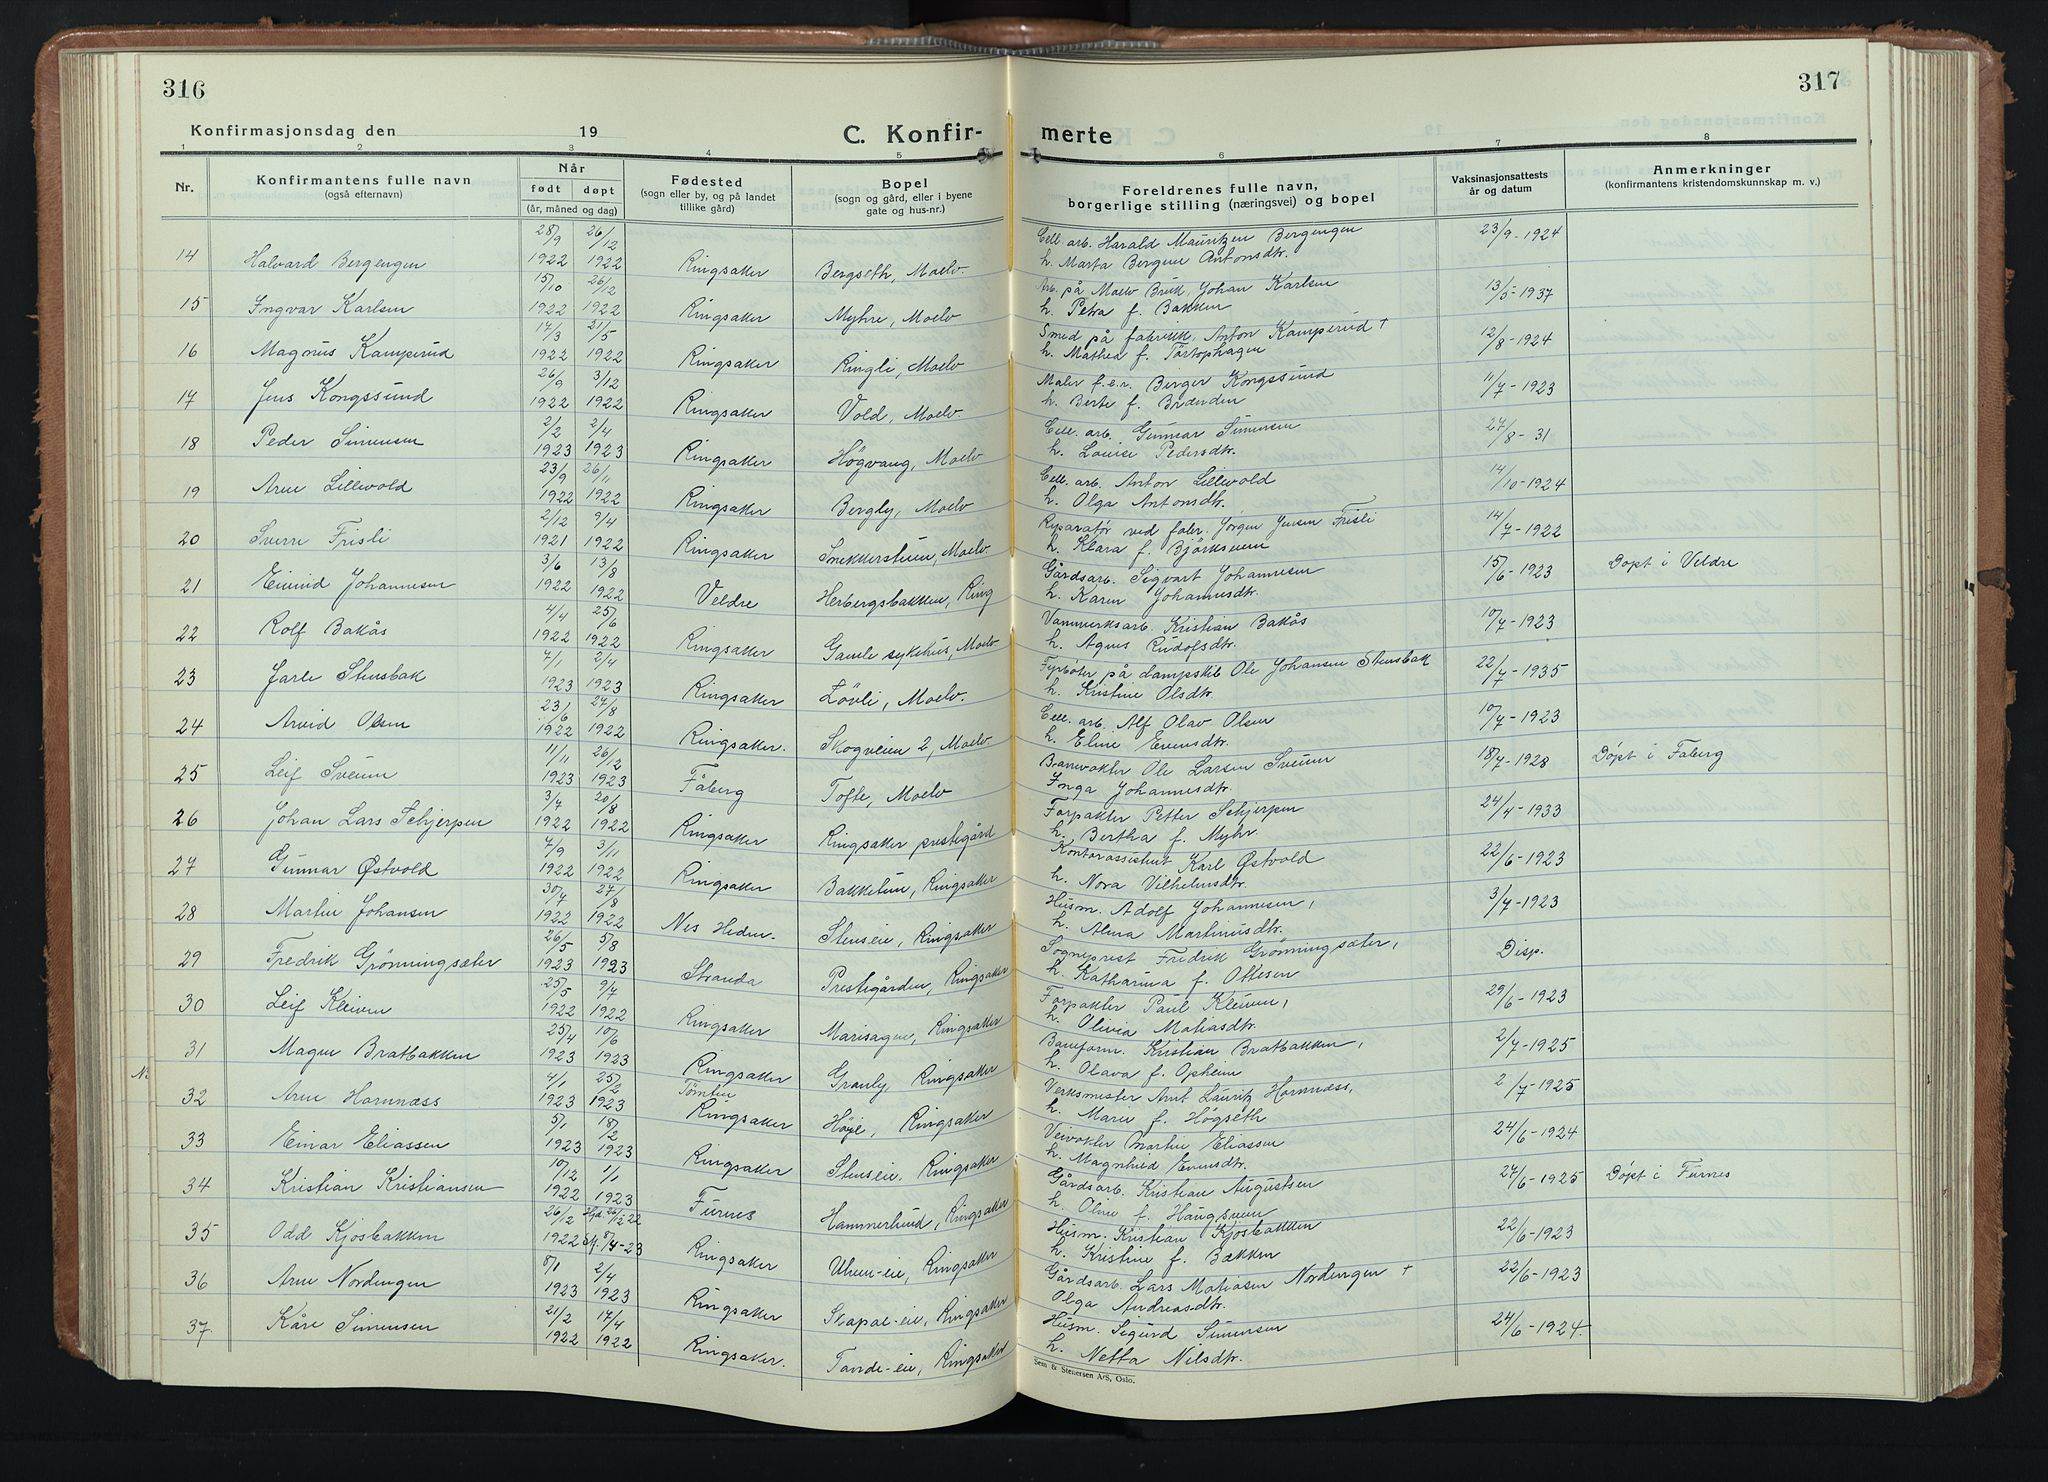 316
317
Konfirmasjonsdag den 19
C. Konfir- merte
1 2 3 4 5 6 7 8
Nr.
Konfirmantens fulle navn
(også efternavn)
Når
født døpt
(år, måned og dag)
Fødested
(sogn eller by, og på landet
tillike gård)
Bopel
(sogn og gård, eller i byene
gate og hus-nr.)
Foreldrenes fulle navn,
borgerlige stilling (næringsvei) og bopel
Vaksinasjonsattests
år og datum
Anmerkninger
(konfirmantens kristendomskunnskap m. v.)
28/9 26/12 Cell. arb. Harald Mauritzen Bergengen 23/9-1924
14 Halvard Bergengen 1922 1922 Ringsaker Bergseth, Moelv h. Marta Bergine Antonsdtr.
15/10 26/12 Arb. på Moelv Bruk, Johan Karlsen 13/5-1937
15 Ingvar Karlsen 1922 1922 Ringsaker Myhre, Moelv h. Petra f. Bakken
14/3 21/5 Smed på fabrikk, Anton Kamperud † 12/8-1924
16 Magnus Kamperud 1922 1922 Ringsaker Ringli, Moelv h. Mathea f. Törtophagen
26/9 3/12 Maler f.e.r. Birger Kongssund 11/7-1923
17 Jens Kongssund 1922 1922 Ringsaker Vold, Moelv. h. Berte f. Brænden
2/2 2/4 Cell. arb. Gunnar Simensen 27/8-31
18 Peder Simensen 1923 1923 Ringsaker Högvang, Moelv h. Louise Pedersdtr.
23/9 26/11 Cell. arb. Anton Lillevold 14/10-1924
19 Arne Lillevold 1922 1922 Ringsaker Bergly, Moelv h. Olga Antonsdtr.
2/12 9/4 Reparatør ved fabr. Jørgen Jensen Frisli 14/7-1922
20 Sverre Frisli 1921 1922 Ringsaker Snekkerstuen, Moelv h. Klara f. Björksveen
3/6 13/8 Gårdsarb. Sigvart Johannesen 15/6-1923 Döpt i Veldre
21 Eivind Johannesen 1922 1922 Veldre Herbergsbakken, Ring h. Karen Johannesdtr.
4/4 25/6 Vannverksarb. Kristian Bakås 10/7-1923
22 Rolf Bakås 1922 1922 Ringsaker Gamle sykehus, Moelv h. Agnes Rudolfsdtr.
7/1 2/4 Fyrböter på dampskib Ole Johansen Stensbak 22/7-1935
23 Jarle Stensbak 1923 1923 Ringsaker Lövli, Moelv. h. Kristine Olsdtr.
23/6 27/8 Cell. arb. Alf Olav Olsen 10/7-1923
24 Arvid Olsen 1922 1922 Ringsaker. Skogveien 2, Moelv h. Eline Evensdtr.
11/11 26/12 Banevokter Ole Larsen Sveum 18/7-1928 Döpt i Faberg
25 Leif Sveum 1923 1923 Fåberg Tofte, Moelv Inga Johannesdtr.
3/7 20/8 Forpakter Petter Schjerpen 24/4-1933
26 Johan Lars Schjerpen 1922 1922 Ringsaker Ringsaker prestegård h. Bertha f. Myhr.
7/9 3/11 Kontorassistent Karl Østvold 22/6-1923
27 Gunnar Østvold 1922 1922 Ringsaker Bakketun, Ringsaker h. Nora Vilhelmsdtr.
30/7 27/8 Husm. Adolf Johannesen, 3/7-1923
28 Martin Johansen 1922 1922 Nes Hedm. Stenseie, Ringsaker h. Alma Martinusdtr.
26/5 5/8 Sogneprest Fredrik Grönningsæter, Disp.
29 Fredrik Grönningsæter 1923 1923 Stranda Prestegården, Ringsaker h. Katharina f. Ottesen
25/5 9/7 Forpakter Paul Kleiven, 29/6-1923
30 Leif Kleiven 1922 1922 Ringsaker Marisagen, Ringsaker h. Olivia Matiasdtr.
25/4 10/6 Baneform. Kristian Bratbakken, 2/7-1925
31 Magne Bratbakken 1923 1923 Ringsaker Granly, Ringsaker h. Olava f. Opheim
4/1 25/2 Tömten Verksmester Arnt Lauritz Hornnæss, 2/7-1925
32 Arne Hornnæss 1923 1923 Ringsaker Höyle, Ringsaker h. Marie f. Högseth
5/1 18/2 Veivokter Martin Eliassen 24/6-1924
33 Einar Eliassen 1923 1923 Ringsaker Stenseie. Ringsaker h. Magnhild Evensdtr.
10/12 1/1 Gårdsarb. Kristian Augustsen 27/6-1925 Döpt i Furnes
34 Kristian Kristiansen 1922 1923 Furnes Hammerlund, Ringsaker h. Oline f. Haugsveen
26/2 Hjd. 26/12-22 Husm. Kristian Kjosbakken 22/6-1923
35 Odd Kjosbakken 1922 st. 8/4-23 Ringsaker Uhen-eie, Ringsaker h. Kristine f. Bakken
8/1 2/4 Gårdsarb. Lars Matiasen Nordengen † 22/6-1923
36 Arne Nordengen 1923 1923 Ringsaker Skapal-eie, Ringsaker Olga Andreasdtr.
21/2 17/4 Husm. Sigurd Simensen 24/6-1924.
37. Kåre Simensen 1922 1922 Ringsaker. Tande-eie, Ringsaker h. Netta Nilsdtr.
Sem & Stenersen A/S, Oslo.